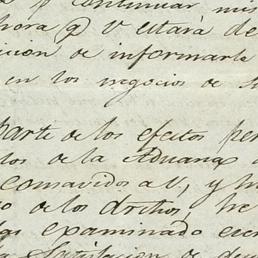 continuar mis
hora q V estará de
icion de informarle
en los negocios de
parte de los efectos per
los de la Aduana
comavidos a V, y
o de los drchos, he
las examinado
la satisfacion de